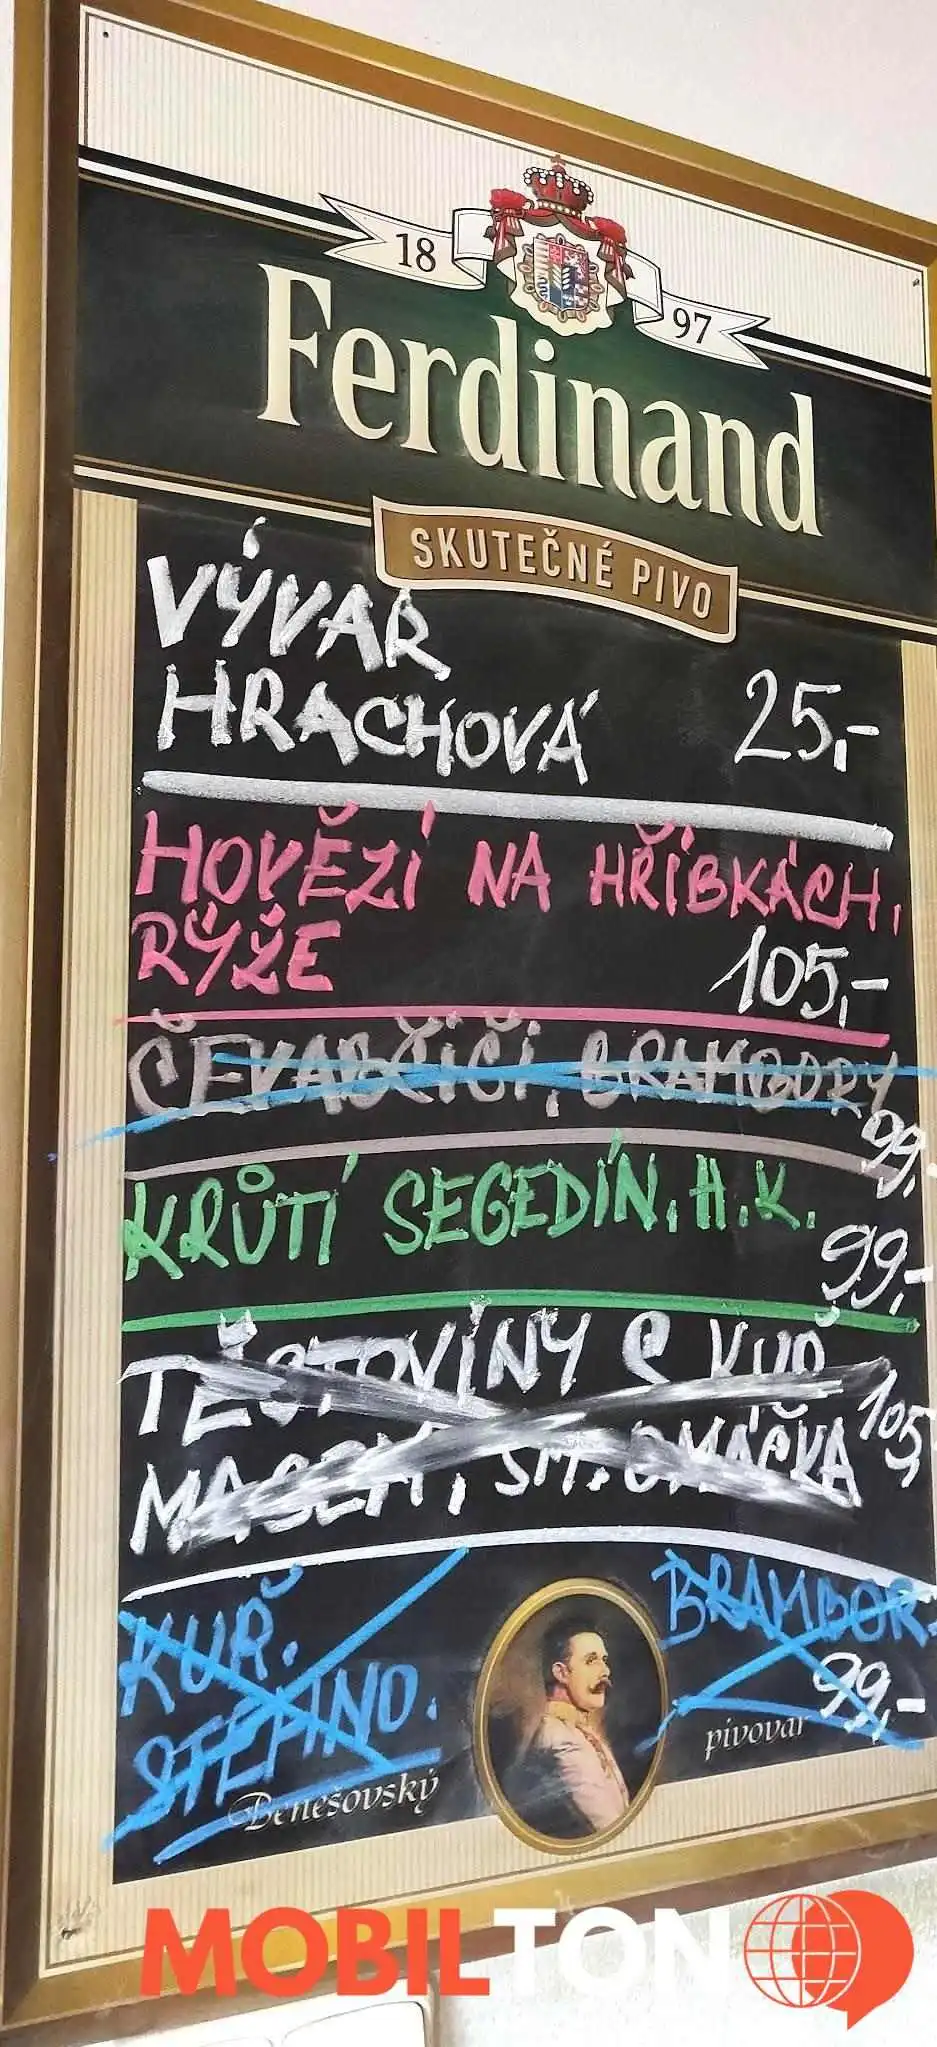 18 97
Ferdinand
SKUTEČNÉ PIVO
VÝVAR
HRACHOVÁ 25,-
HOVĚZÍ NA HŘÍBKÁCH,
RÝŽE 105,-
ČEVABČIČI, BRAMBORY
99,-
KRŮTÍ SEGEDÍN, H.K.
99,-
TĚSTOVINY S KUŘ.
MASEM, SM. OMÁČKA 105,-
KUŘ. BRAMBOR.
STEHNO. 99,-
Benešovský pivovar
MOBIL TON